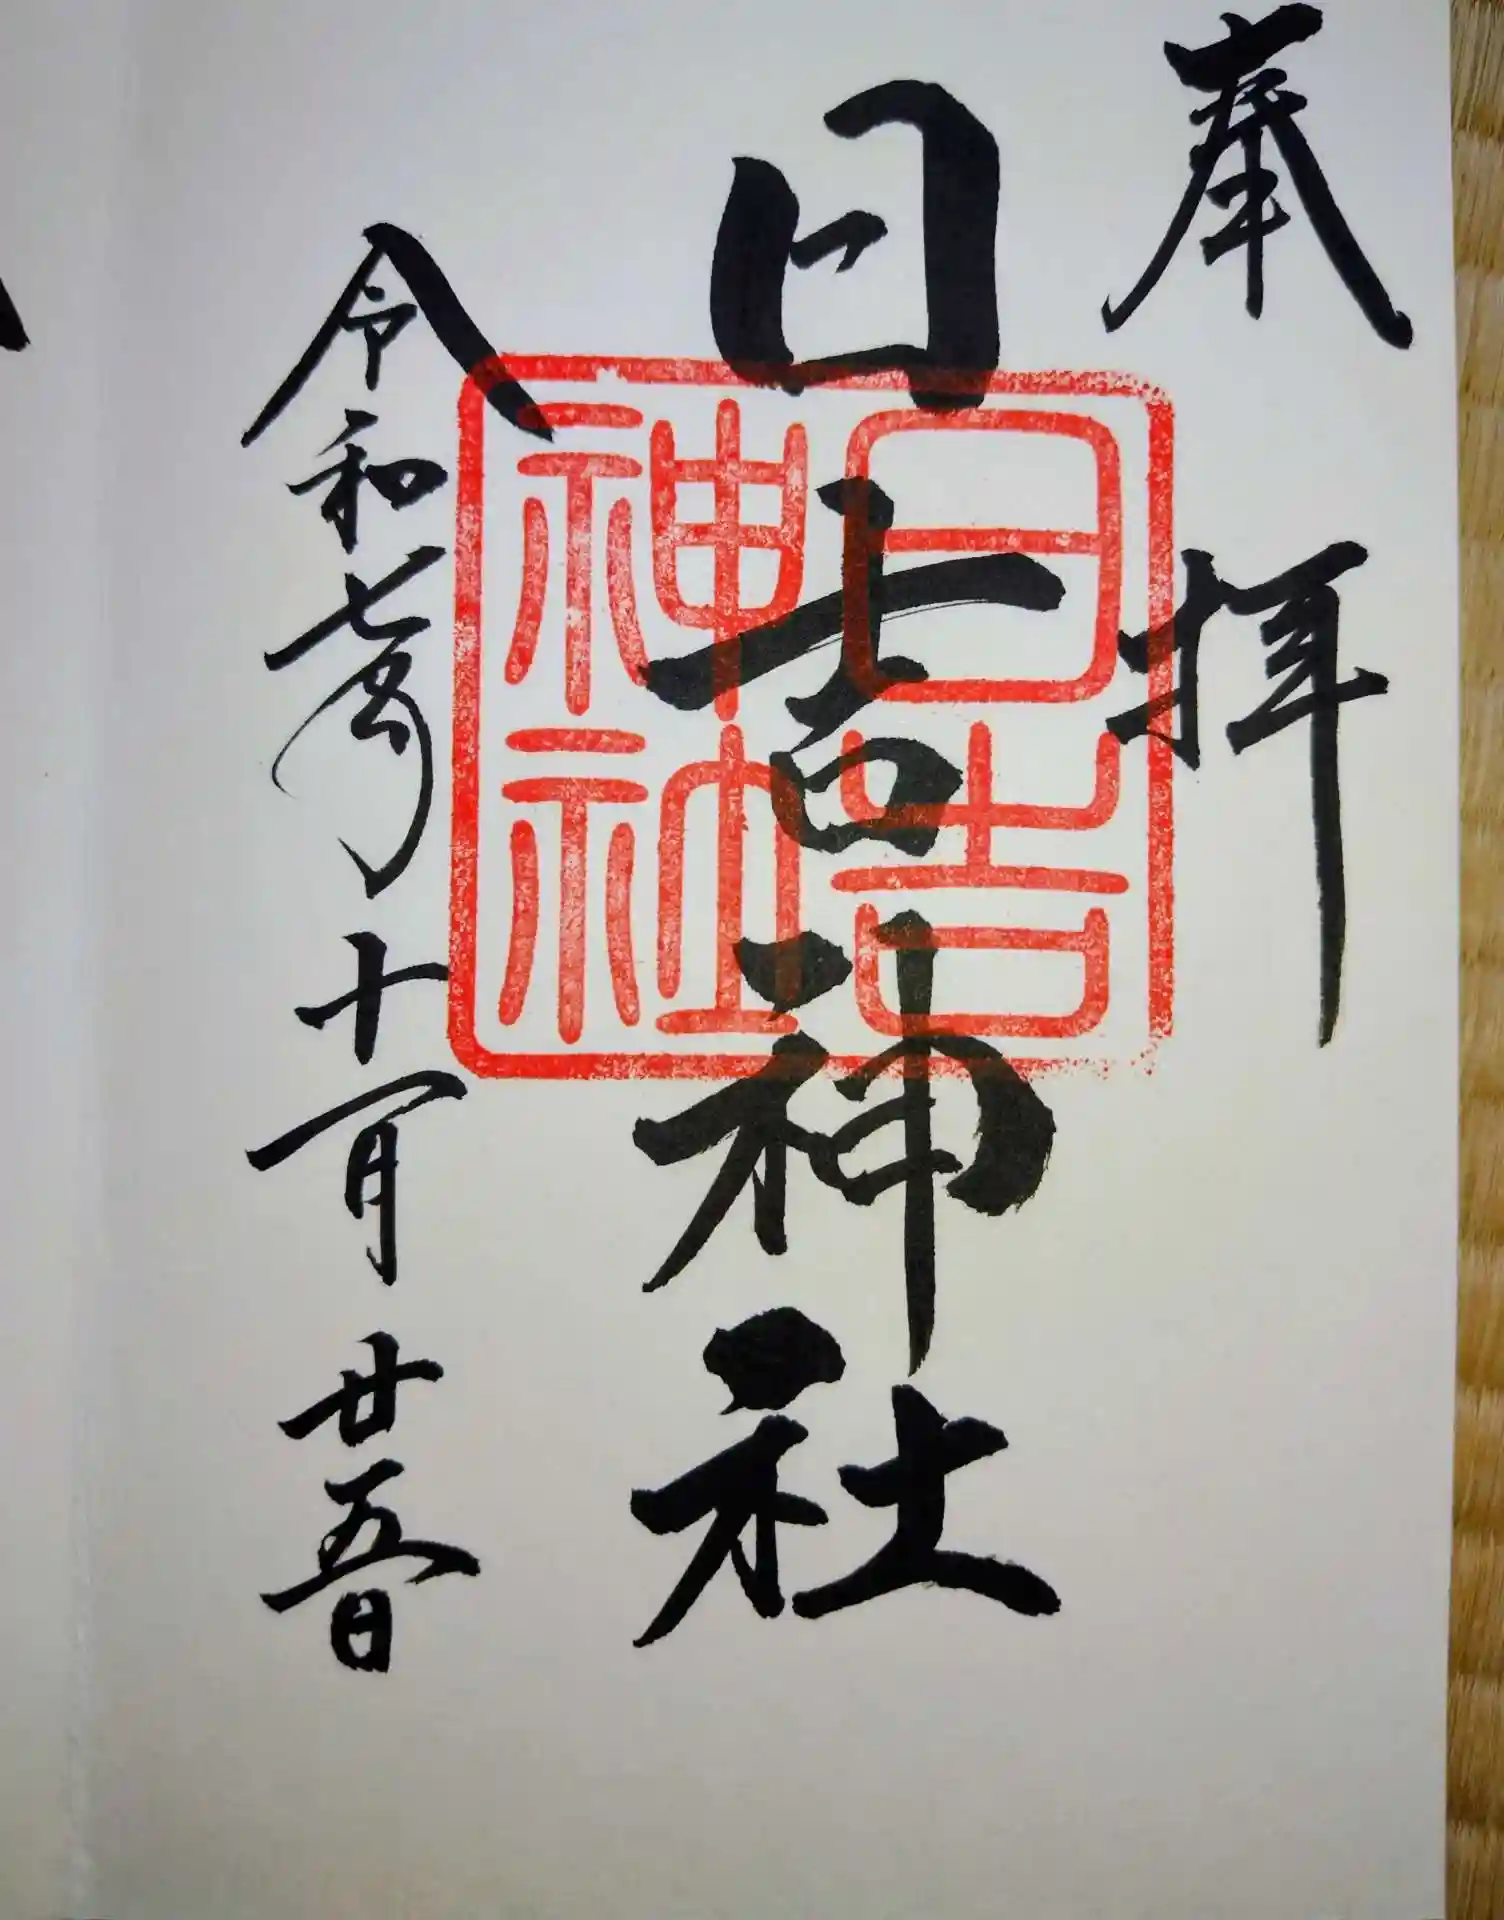 奉拝
日吉神社
令和七年十一月廿五日
日吉
神社